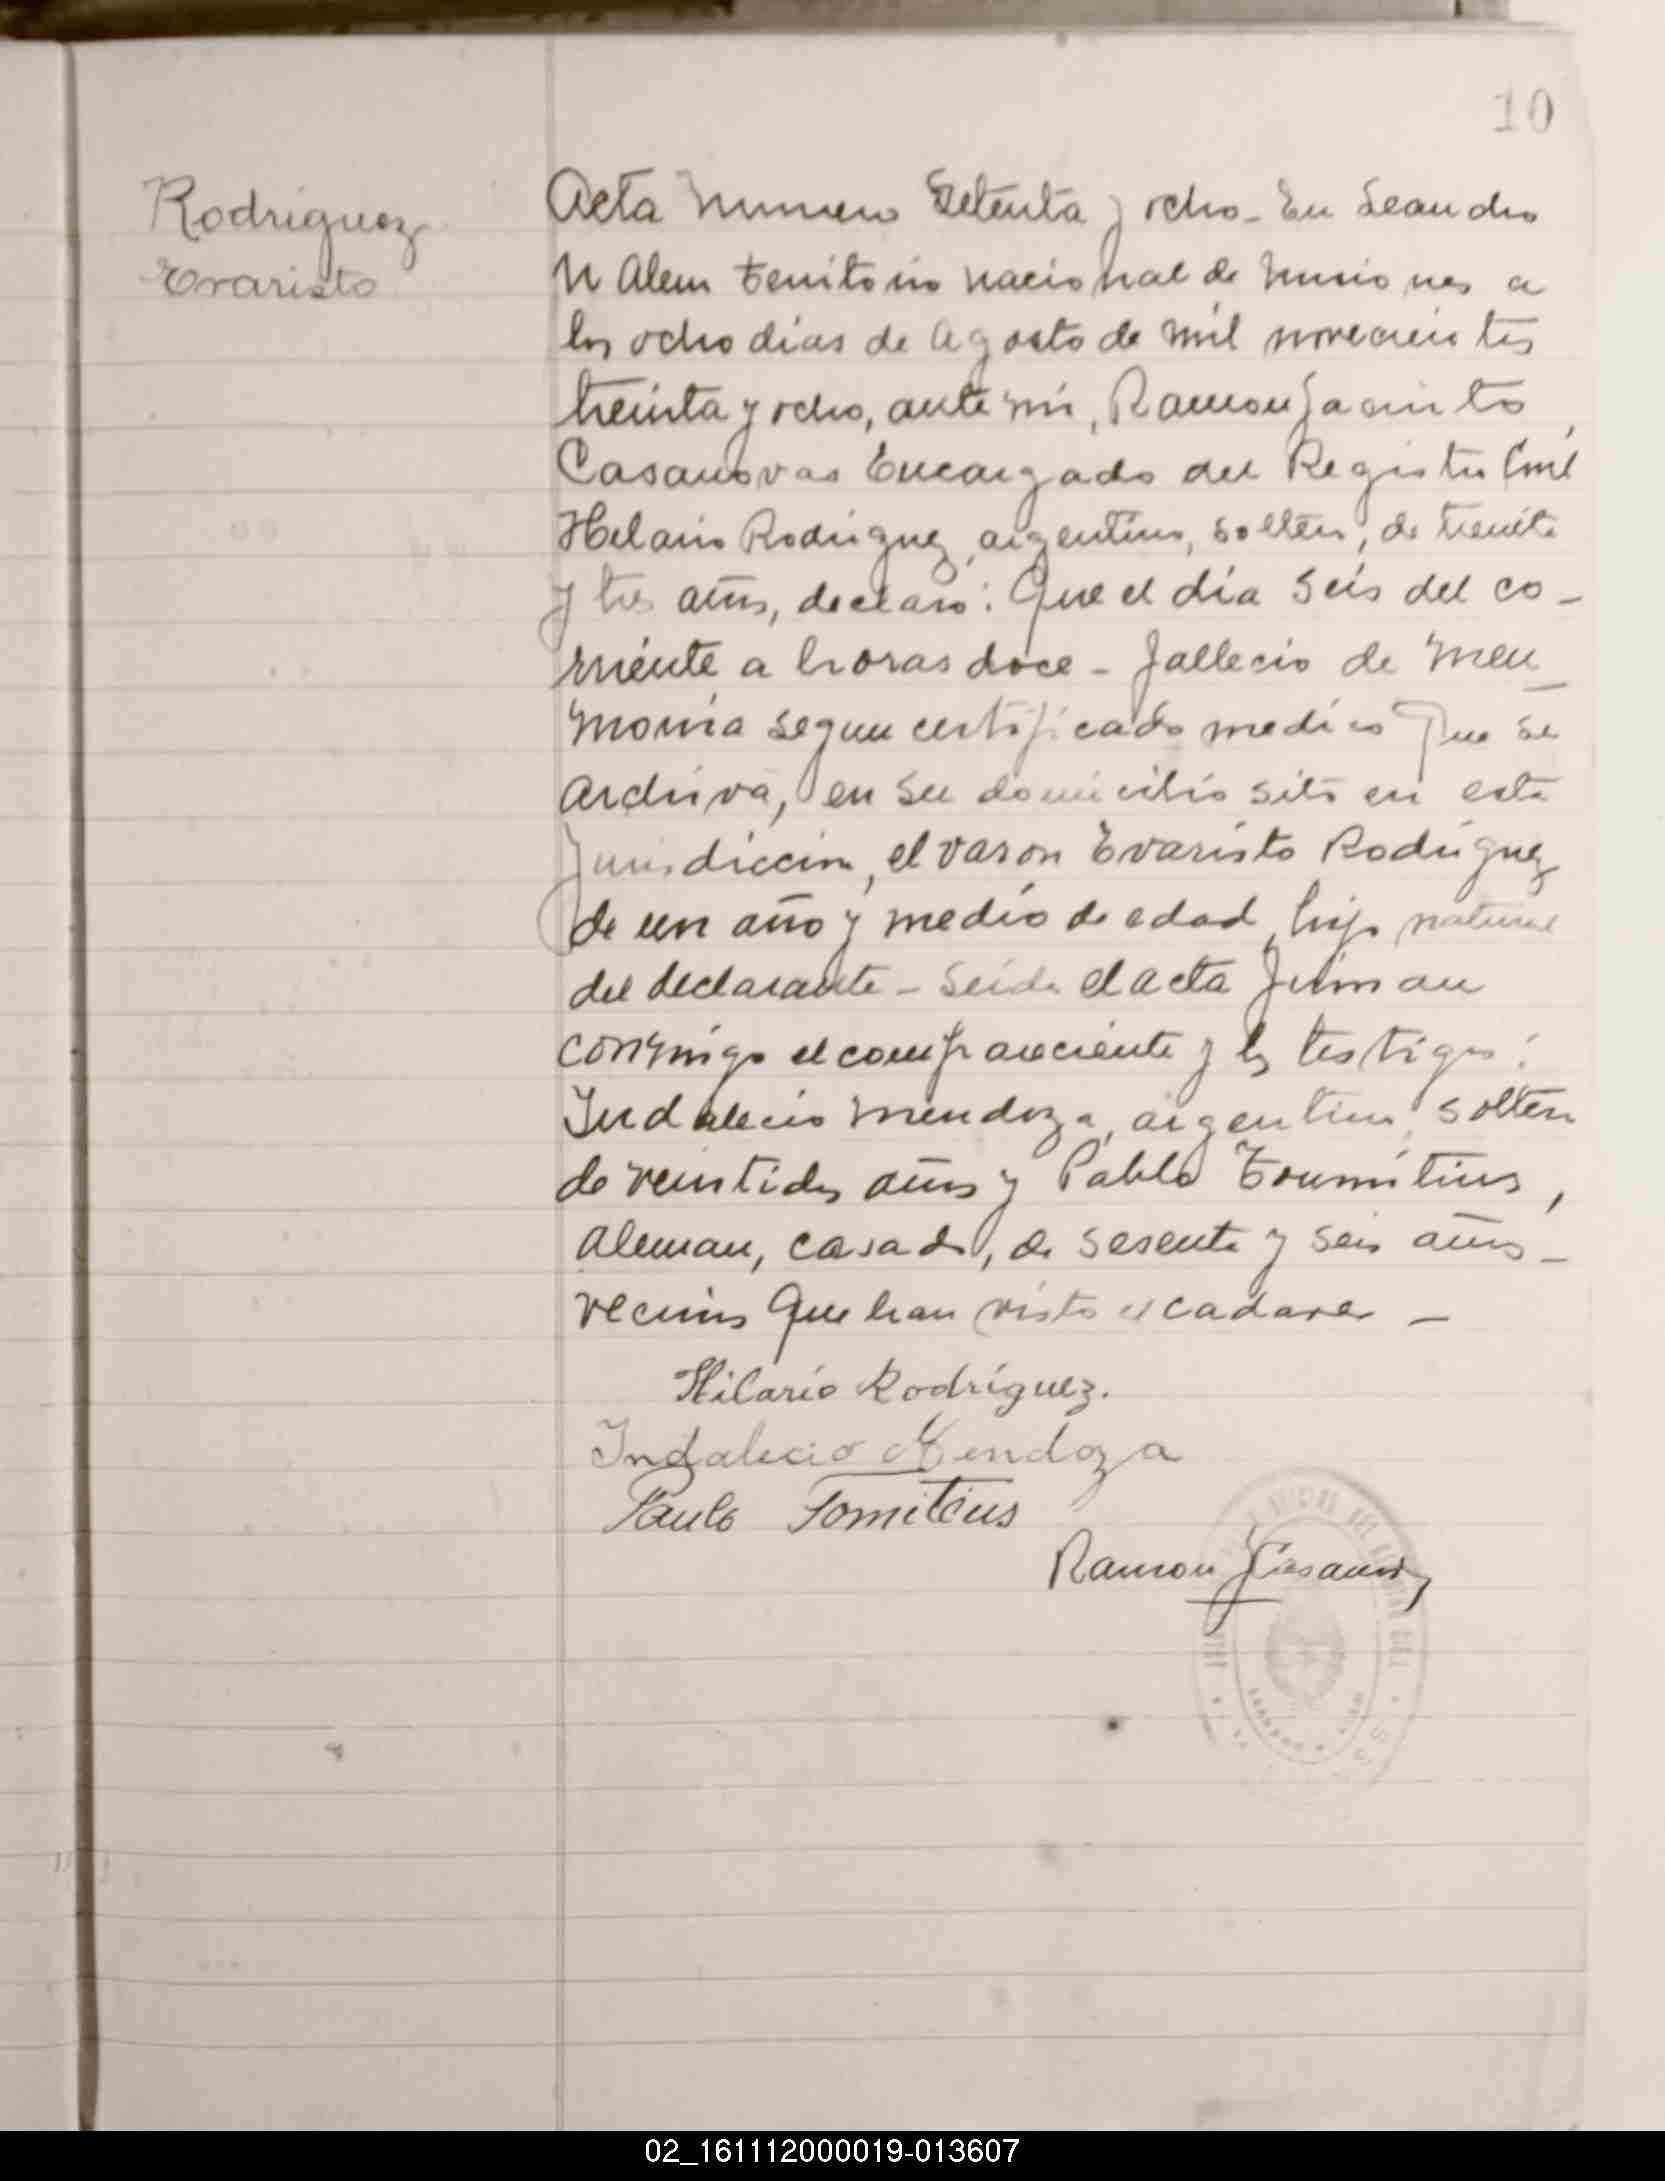 10
Rodriguez
Evaristo
Acta Numero Setenta y ocho - En Leandro
N Alem Territorio Nacional de Misiones a
los ocho dias de Agosto de mil novecientos
treinta y ocho, ante mi, Ramon Jacinto
Casanovas Encargado del Registro Civil
Helario Rodriguez, argentino, soltero, de treinta
y tres años, declaro: Que el dia seis del co-
rriente a horas doce - fallecio de Neu-
monia segun certificado medico que se
archiva, en su domicilio sito en esta
Jurisdiccion, el varon Evaristo Rodriguez
de un año y medio de edad, hijo natural
del declarante - Leida el acta firman
conmigo el compareciente y los testigos:
Indalecio Mendoza, argentino, soltero
de veintidos años y Pablo Toumitius,
Aleman, casado, de sesenta y seis años -
vecinos que han visto el cadaver -
Hilario Rodríguez.
Indalecio Mendoza
Paulo Tomitius
Ramon J Casanovas
02_161112000019-013607